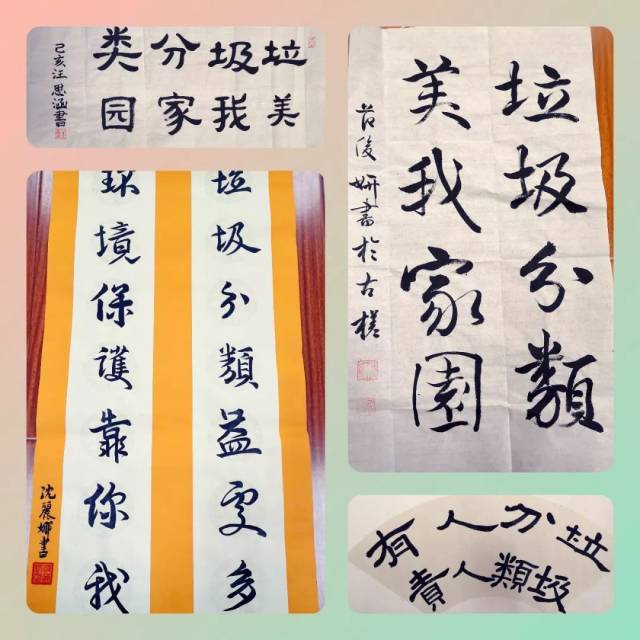 垃圾分类
美我家园
己亥汪思涵書
垃圾分類
美我家園
范俊妍書於古槎
垃圾分類益處多
環境保護靠你我
沈麗娜書
垃圾
分類
人人
有責